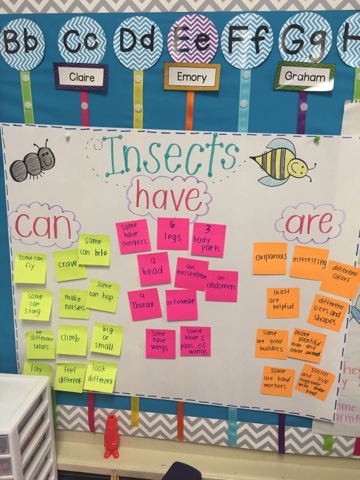 Bb Cc Dd Ee Ff Gg H
Claire Emory Graham
Insects
can have are
some can
fly
crawl
some can bite
some can
sting
make
noises
some can hop
be
different
colors
climb
big
or
small
lay
feel
different
look
different
some
have
stingers
6
legs
3
body
parts
a
head
an
exoskeleton
an
abdomen
a
thorax
antennae
some
have
wings
some
have 2
pairs of
wings
oviparous
interesting
different
colors
most
are
helpful
different
sizes and
shapes
some
are good
builders
more
plentiful
than any
other animal
some
are hard
workers
social
and live
together